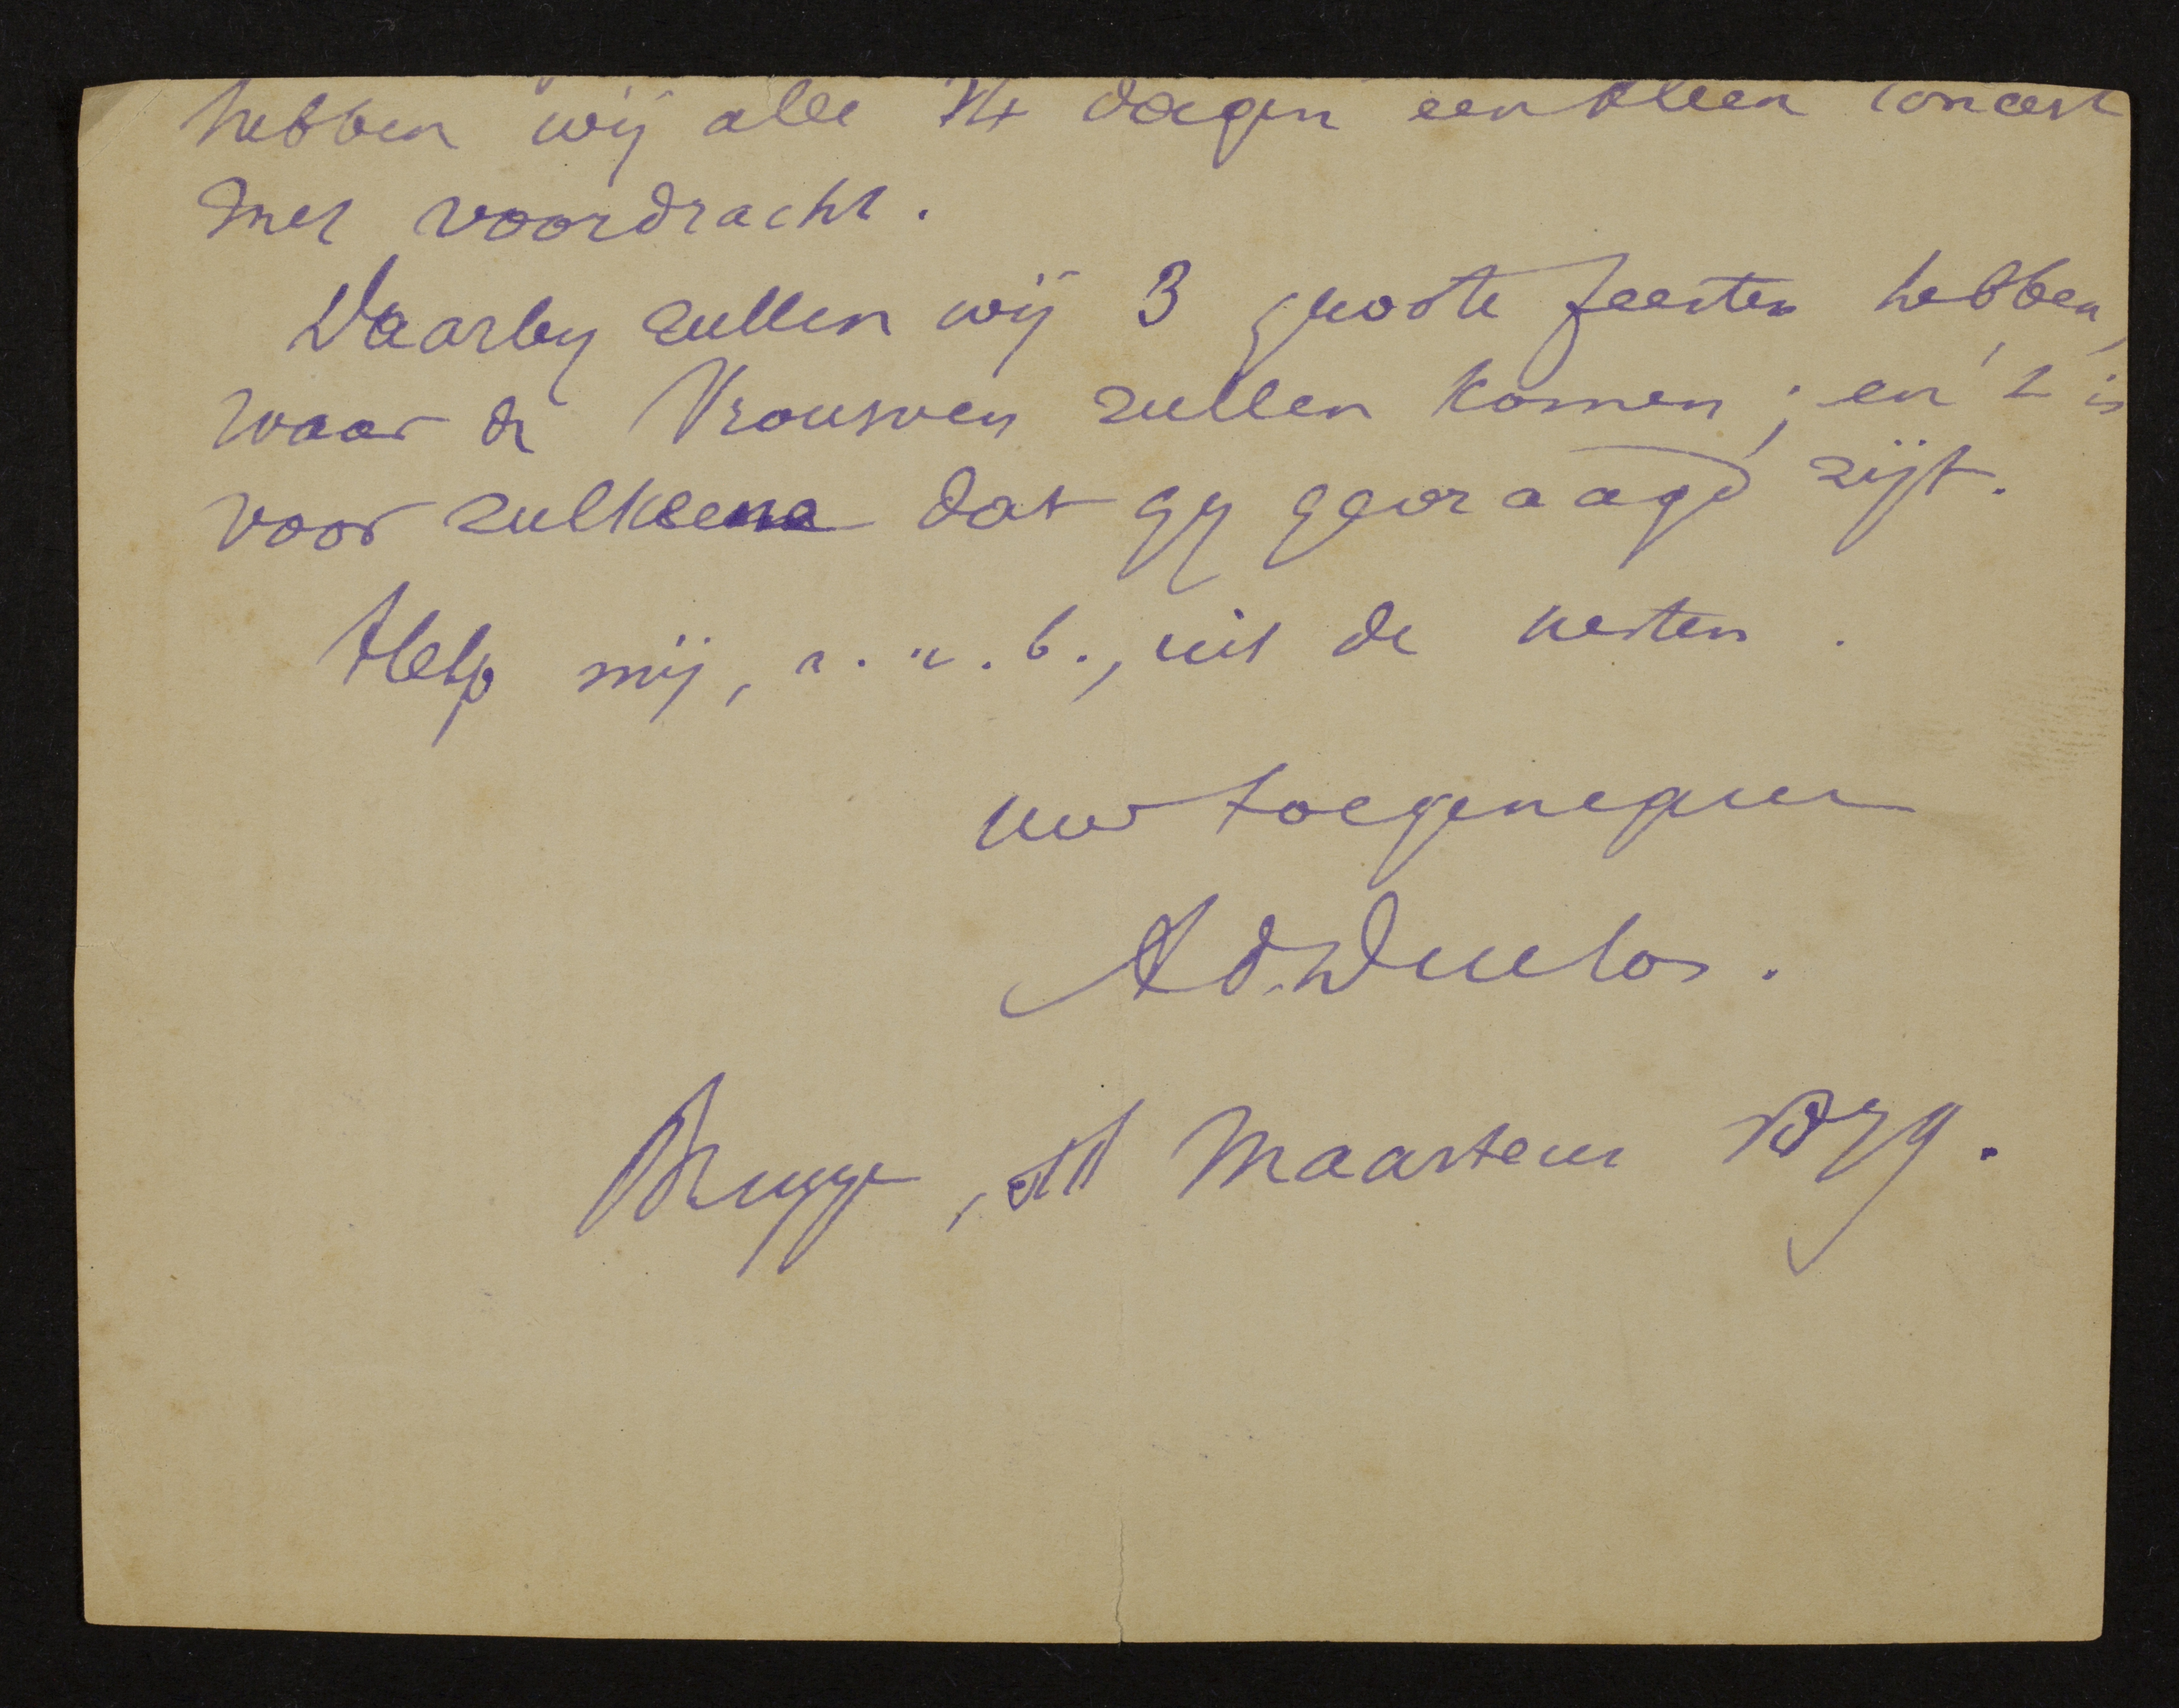 hebben wij alle 14 dagen een kleen concert
met voordracht.
Daarby zullen wij 3 groote feesten hebben,
waar de Vrouwen zullen komen; en 't is
voor zulkeene dat gy gevraagd zijt.
Help mij, a. u. b., uit de nesten.
uw toegenegen
Ad. Duclos.
Brugge, St Maartens 1879.